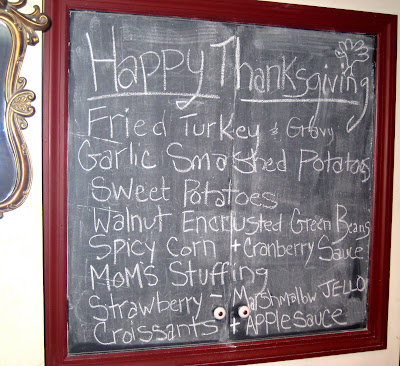 Happy Thanksgiving
Fried Turkey & Gravy
Garlic Smashed Potatoes
Sweet Potatoes
Walnut Encrusted Green Beans
Spicy Corn + Cranberry Sauce
Moms Stuffing
Strawberry - Marshmallow JELLO
Croissants + Applesauce